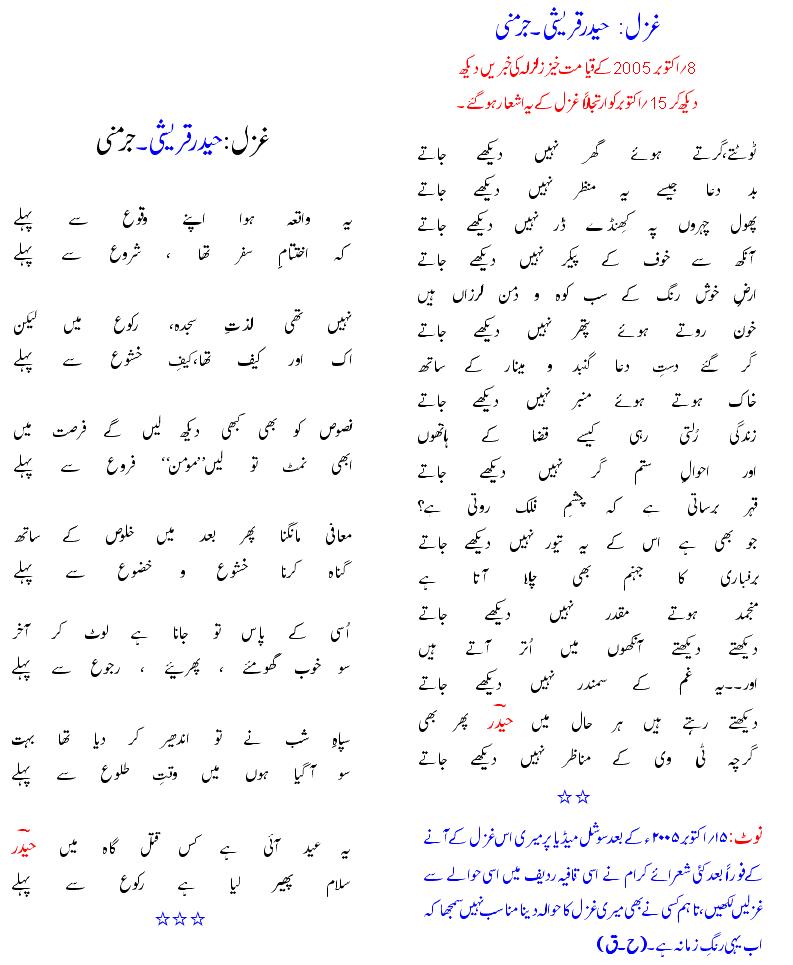 غزل: حیدر قریشی۔جرمنی
8/اکتوبر 2005 کے قیامت خیز زلزلہ کی خبریں دیکھ
دیکھ کر 15/اکتوبر کو ارتجالاً غزل کے یہ اشعار ہو گئے۔
ٹوٹتے،گرتے ہوئے گھر نہیں دیکھے جاتے
بد دعا جیسے یہ منظر نہیں دیکھے جاتے
پھول چہروں پہ کھنڈے ڈر نہیں دیکھے جاتے
آنکھ سے خوف کے پیکر نہیں دیکھے جاتے
ارضِ خوش رنگ کے سب کوہ و دمن لرزاں ہیں
خون روتے ہوئے پتھر نہیں دیکھے جاتے
گر گئے دستِ دعا گنبد و مینار کے ساتھ
خاک ہوتے ہوئے منبر نہیں دیکھے جاتے
زندگی رُلتی رہی کیسے قضا کے ہاتھوں
اور احوالِ ستم گر نہیں دیکھے جاتے
قہر برساتی ہے کہ چشمِ فلک روتی ہے؟
جو بھی ہے اس کے یہ تیور نہیں دیکھے جاتے
برفباری کا جہنم بھی چلا آتا ہے
منجمد ہوتے مقدر نہیں دیکھے جاتے
دیکھتے دیکھتے آنکھوں میں اُتر آتے ہیں
اور۔۔یہ غم کے سمندر نہیں دیکھے جاتے
دیکھتے رہتے ہیں ہر حال میں حیدؔر پھر بھی
گرچہ ٹی وی کے مناظر نہیں دیکھے جاتے
☆☆
نوٹ: ۱۵/اکتوبر ۲۰۰۵ء کے بعد سوشل میڈیا پر میری اس غزل کے آنے
کے فوراً بعد کئی شعرائے کرام نے اسی قافیہ ردیف میں اسی حوالے سے
غزلیں لکھیں،تاہم کسی نے بھی میری غزل کا حوالہ دینا مناسب نہیں سمجھا کہ
اب یہی رنگِ زمانہ ہے۔(ح۔ق)
غزل:حیدر قریشی۔جرمنی
یہ واقعہ ہوا اپنے وقوع سے پہلے
کہ اختتامِ سفر تھا ، شروع سے پہلے
نہیں تھی لذتِ سجدہ، رکوع میں لیکن
اک اور کیف تھا،کیفِ خشوع سے پہلے
نصوص کو بھی کبھی دیکھ لیں گے فرصت میں
ابھی نمٹ تو لیں”مومن“ فروع سے پہلے
معافی مانگنا پھر بعد میں خلوص کے ساتھ
گناہ کرنا خشوع و خضوع سے پہلے
اُسی کے پاس تو جانا ہے لوٹ کر آخر
سو خوب گھومئے ، پھریئے ، رجوع سے پہلے
سپاہِ شب نے تو اندھیر کر دیا تھا بہت
سو آگیا ہوں میں وقتِ طلوع سے پہلے
یہ عید آئی ہے کس قتل گاہ میں حیدؔر
سلام پھیر لیا ہے رکوع سے پہلے
☆☆☆